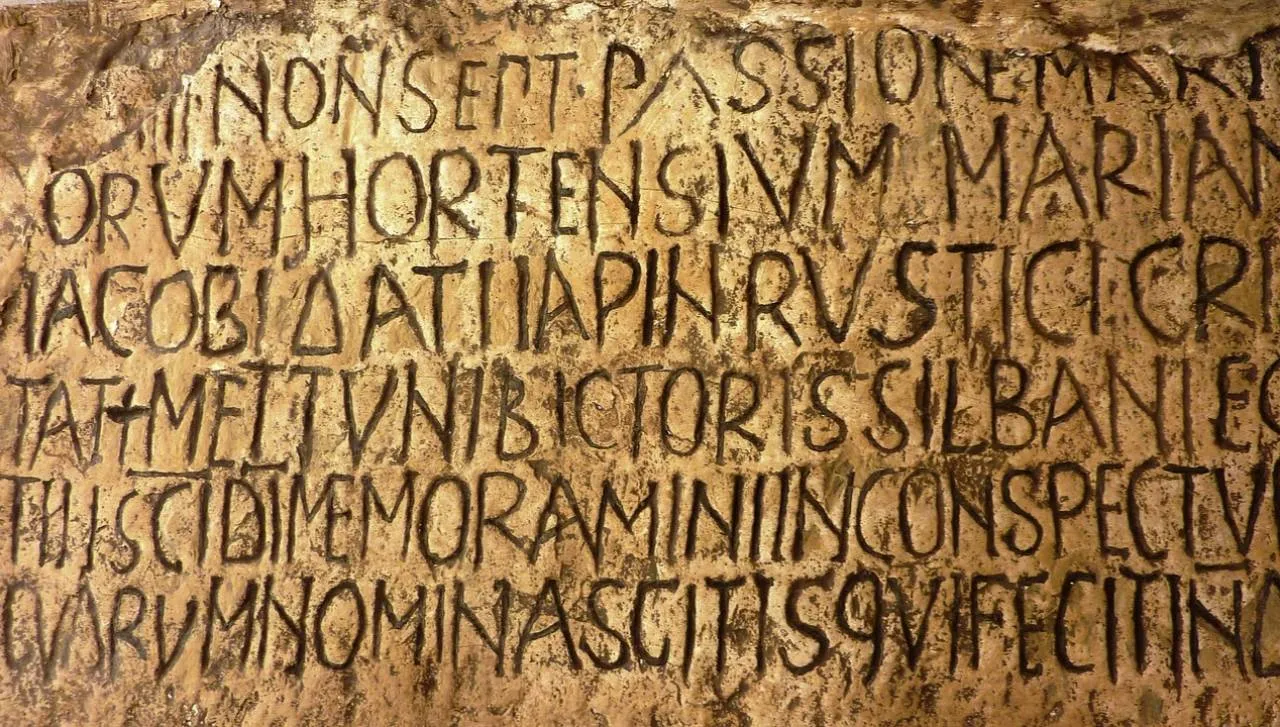 IIII NON SEPT · PASSIONE
ORVM HORTENSIVM MARIAN
IACOBI DATI IAPIN RVSTICI CRI
TAT + METTVNI BICTORIS SILBANI EG
TII SCI DI MEMORAMINI IN CONSPECTV
QVARVM NOMINA SCITIS QVI FECIT IN